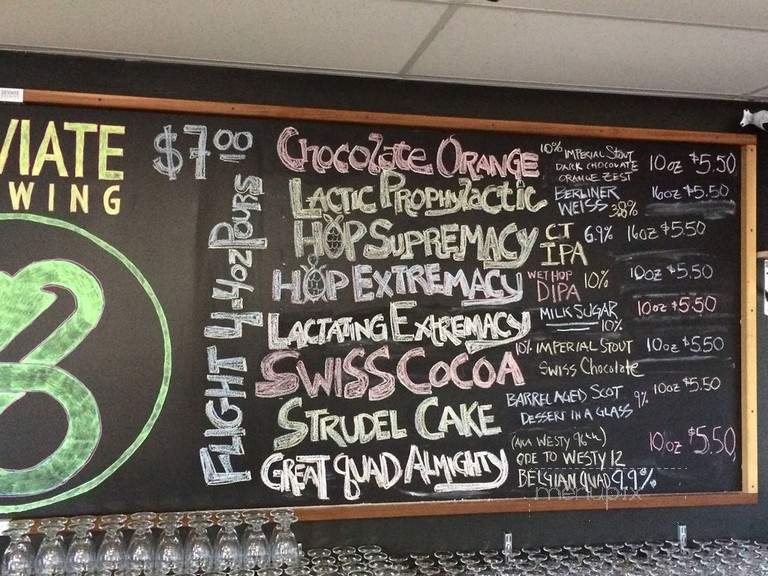 VIATE
WING
$7.00
FLIGHT 4-4oz POURS
CHOCOLATE ORANGE 10% IMPERIAL STOUT 10oz $5.50
DARK CHOCOLATE
ORANGE ZEST
LACTIC PROPHYLACTIC BERLINER 16oz $5.50
WEISS 3.8%
HOP SUPREMACY CT 6.9% 16oz $5.50
IPA
HOP EXTREMACY WET HOP 10% 10oz $5.50
DIPA
LACTATING EXTREMACY MILK SUGAR 10oz $5.50
10%
SWISS COCOA 10% IMPERIAL STOUT 10oz $5.50
SWISS CHOCOLATE
STRUDEL CAKE BARREL AGED SCOT 9% 10oz $5.50
DESSERT IN A GLASS
GREAT QUAD ALMIGHTY (AKA WESTY 96th) 10oz $5.50
ODE TO WESTY 12
BELGIAN QUAD 9.9%
menupix